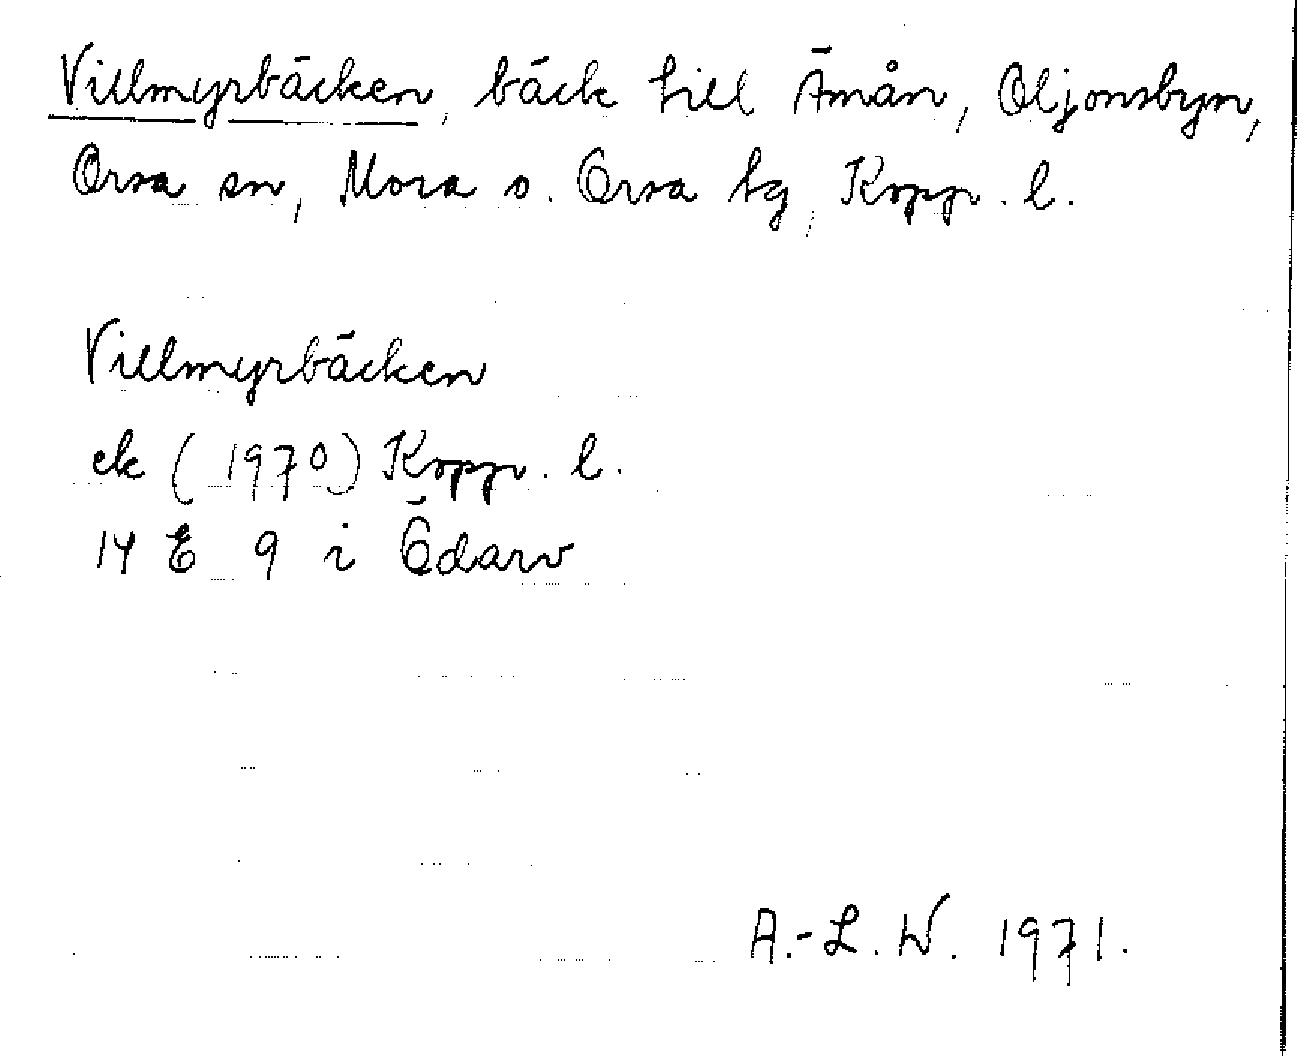 Villmyrbäcken, bäck till Ämån, Oljonsbyn,
Orsa sn, Mora o. Orsa tg, Kopp. l.
Villmyrbäcken
ek (1970) Kopp. l.
14 E 9 i Ödarv
A.-L. W. 1971.